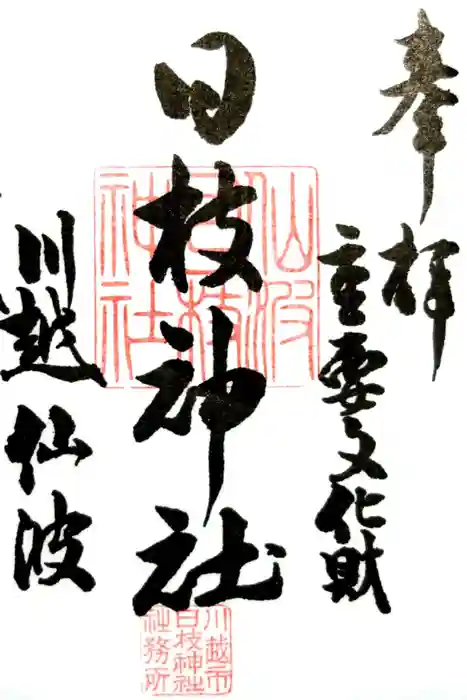 奉拝
重要文化財
日枝神社
川越仙波
仙波
日枝
神社
川越市
日枝神社
社務所